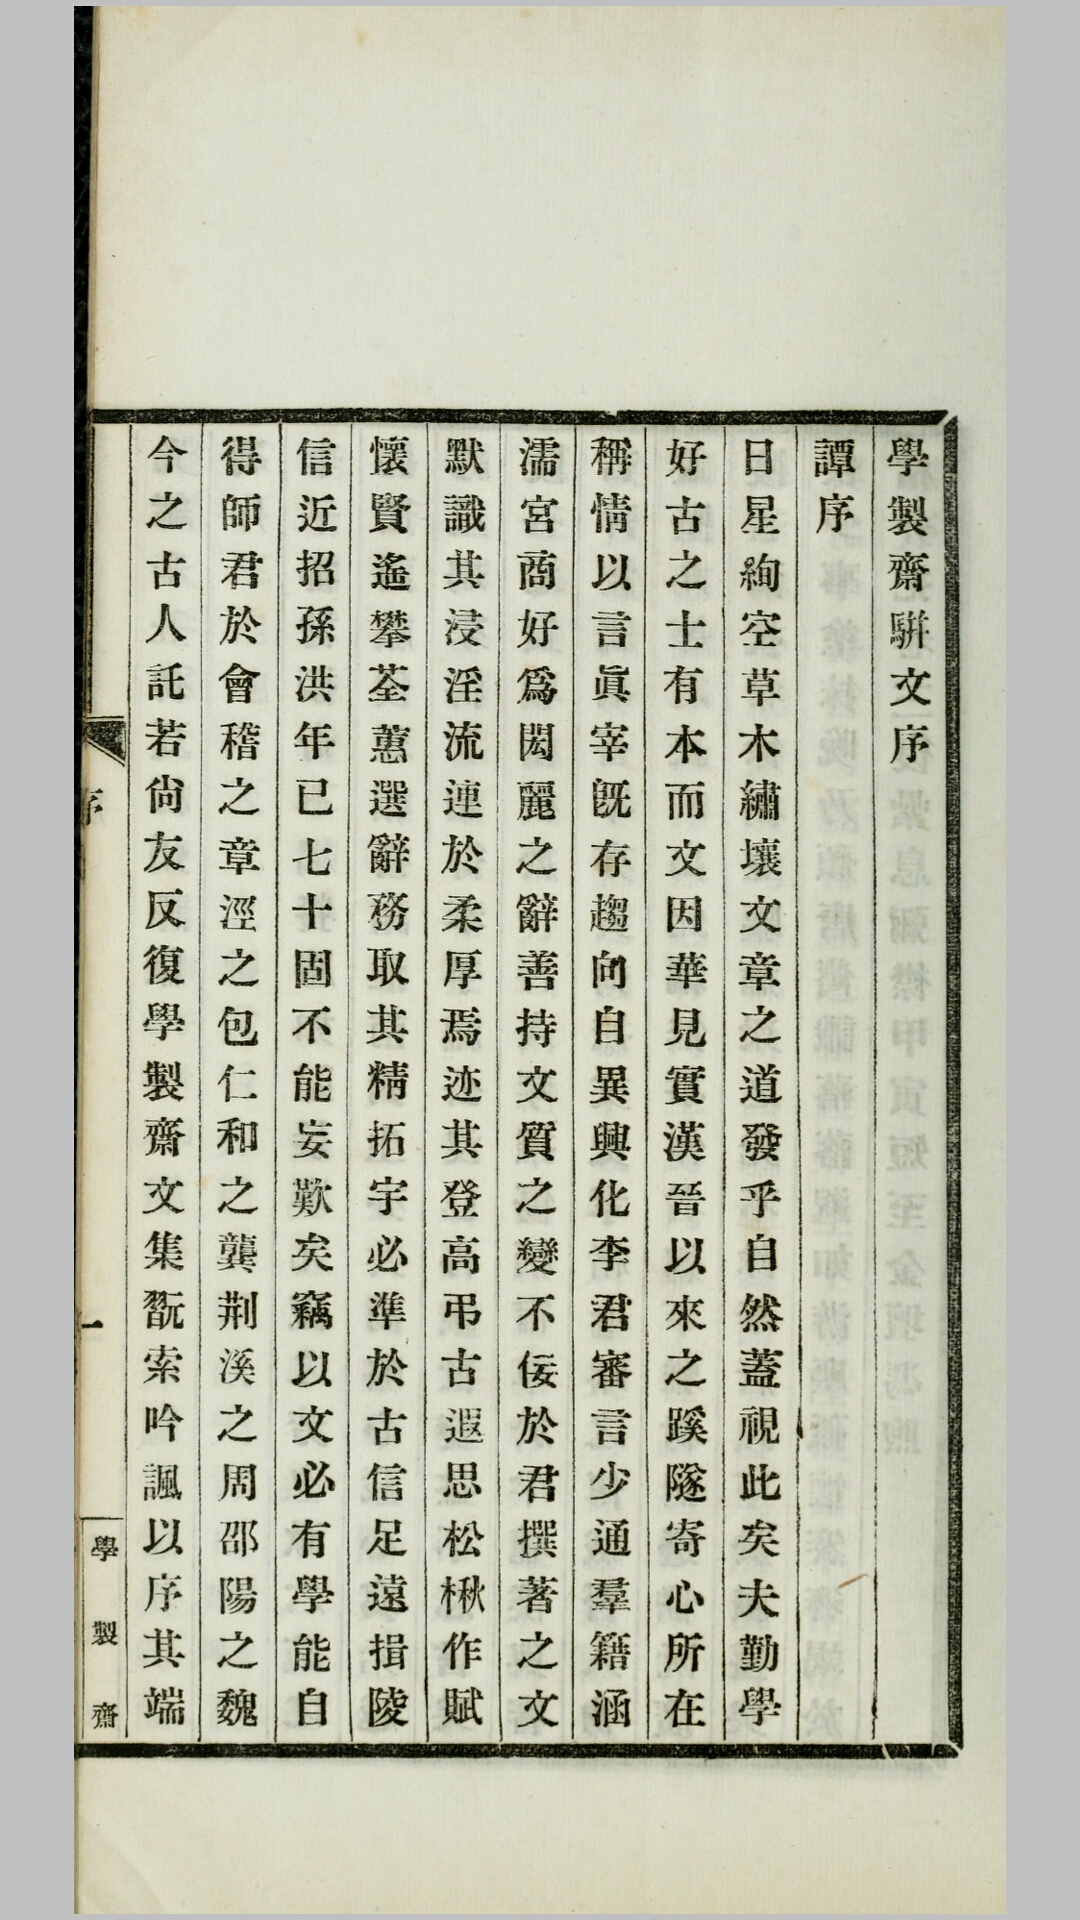 學製齋駢文序
譚序
日星絢空草木繡壤文章之道發乎自然蓋視此矣夫勤學
好古之士有本而文因華見實漢晉以來之蹊隧寄心所在
稱情以言眞宰旣存趨向自異興化李君審言少通羣籍涵
濡宮商好爲閎麗之辭善持文質之變不佞於君撰著之文
默識其浸淫流連於柔厚焉迹其登高弔古遐思松楸作賦
懷賢遙攀荃蕙選辭務取其精拓宇必準於古信足遠揖陵
信近招孫洪年已七十固不能妄歎矣竊以文必有學能自
得師君於會稽之章涇之包仁和之龔荆溪之周邵陽之魏
今之古人託若尙友反復學製齋文集翫索吟諷以序其端
序
一
學製齋